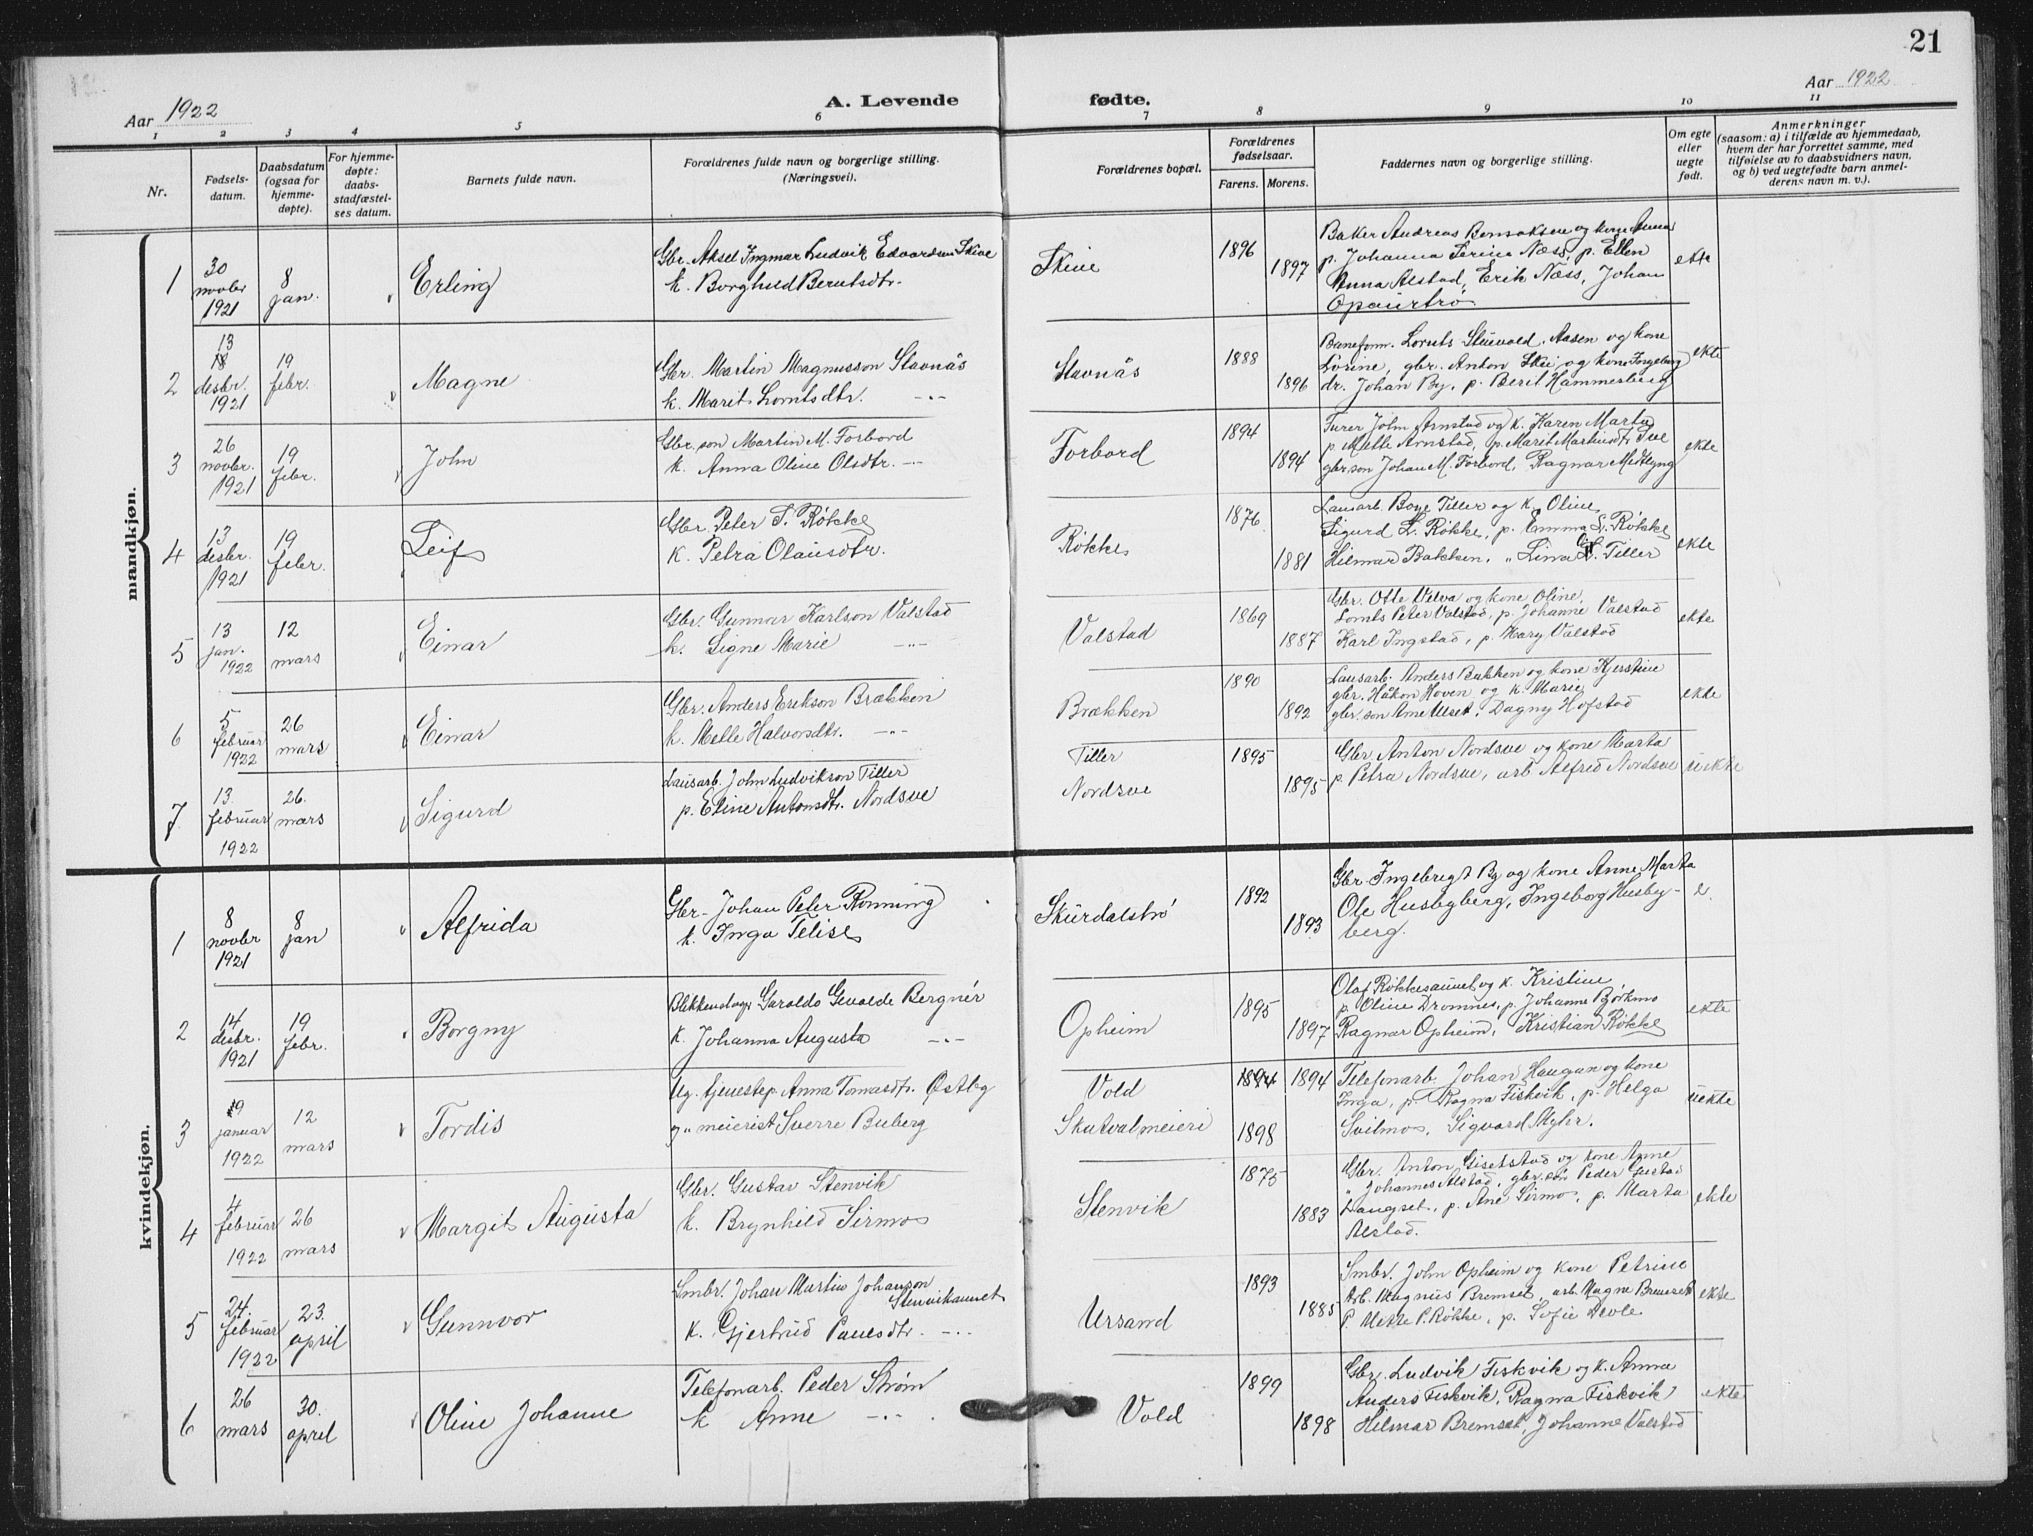 21
Aar 1922
A. Levende
fødte.
Aar 1922
1 2 3 4 5 6 7 8 9 10 11
Nr.
Fødsels-
datum.
Daabsdatum
(ogsaa for
hjemme-
døpte).
For hjemme-
døpte:
daabs-
stadfæstel-
ses datum.
Barnets fulde navn.
Forældrenes fulde navn og borgerlige stilling.
(Næringsvei).
Forældrenes bopæl.
Forældrenes
fødselsaar.
Farens. Morens.
Faddernes navn og borgerlige stilling.
Om egte
eller
uegte
født.
Anmerkninger
(saasom: a) i tilfælde av hjemmedaab,
hvem der har forrettet samme, med
tilføielse av to daabsvidners navn,
og b) ved uegtefødte barn anmel-
derens navn m. v.).
mandkjøn.
1
30
novbr
1921
8
jan.
Erling
Gbr. Aksel Ingmar Ludvik Edvardsen Skive
k. Borghild Berntsdtr.
1896
1897
Baker Andreas Bensaksen og kone Anna
p. Johanna Serine Næss, p. Ellen
Anna Alstad, Erik Næss, Johan
ekte
2
13
18
desbr.
1921
19
febr.
Magne
Gbr. Martin Magnusson Stavnås
k. Marit Lorntsdtr. -"-
Stavnås
1888
1896
Baneform. Lornts Aasen og kone
Lorine, gbr. Anton og kone Ingeborg
dr. Johan By, p. Berit Hammersberg
ekte
3
26
novbr.
1921
19
febr.
John
Gbr. son Martin M. Forbord
k. Anna Oline Olsdtr. -"-
Forbord
1894
1894
John Arnstad og k. Karen Marta
p. Melle Arnstad, p. Marit Martinsdtr.
gbr.son Johan M. Forbord, Ragnar Midtlyng
ekte
4
13
desbr.
1921
19
febr.
Leif
Gbr. Peter S. Røkke
K. Petra Olausdtr.
Røkke
1876
1881
Lausarb. Boye Tiller og k. Oline,
Sigurd L. Røkke, p. Emma S. Røkke
Hilmar Bakken, " Lina Tiller
ekte
5
13
jan.
1922
12
mars
Einar
Gbr. Gunnar Karlson Valstad
k. Signe Marie -"-
Valstad
1869
1887
Gbr. Otte Velva og kone Oline,
Lornts Peter Valstad, p. Johanne Valstad
Karl Ingstad, p. Mary Valstad
ekte
6
5
februar
1922
26
mars
Einar
Gbr. Anders Erikson Brækken
k. Melle Halvorsdtr. -"-
Brækken
1890
1892
Lausarb. Anders Bakken og kone Kjerstine
gbr. Håkon Hoven og k. Marie
gbr. son Arne Ulset, Dagny Hofstad
ekte
7
13.
februar
1922
26.
mars
Sigurd
Lausarb. John Ludvikson Tiller
p. Eline Antonsdtr. Nordsve
Tiller
Nordsve
1895
1895
Gbr. Anton Nordsve og kone Marta
p. Petra Nordsve, arb Alfred Nordsve
uekte
kvindekjøn.
1
8
novbr
1921
8
jan
Alfrida
Gbr. Johan Peter Rönning
k. Inga Telise
Skurdalstrø
1892
1893
Gbr. Ingebrigt By og kone Anne Marta
Ole Husbyberg, Ingeborg Husby-
berg.
e.
2
14
desbr.
1921
19
febr.
Borgny
Haralds Gevalde Bergnér
K. Johanna Augusta -"-
Opheim
1895
1897
Olaf Røkkesaunet og k. Kristine,
p. Oline Dromnes, p. Johanne Bjørkmo
Ragnar Opheim, Kristian Røkke
ekte
3
19
januar
1922
12
mars
Tordis
Ug. tjenestep. Anna Tomasdtr. Østby
g" meierist Sverre Buberg
Vold
Skatvalmeieri
1894 1894
1898
Telefonarb. Johan Haugan og kone
Inga, p. Ragna Fiskvik, p. Helga
Svilmos, Sigvard Myhr.
uekte
4
4
februar
1922
26
mars
Margit Augusta
Gbr. Gustav Stenvik
k. Brynhild Sirmos
Stenvik
1875
1883
Gbr. Anton og kone Anne
" Johannes Alstad, gbr. son Peder
Langset, p. Ane Sirmo, p. Marta
Alstad.
ekte
5
24.
februar
1922
23.
april
Gunnvor
Smbr. Johan Martin Johanson
Stenvikaunet
K. Gjertrud Paulsdtr. -"-
Ursand
1893
1885
Smbr. John Opheim og kone Petrine
Arb. Magnus Bremset, arb. Magne Bremset
P. Mette P. Røkke, p. Sofie Devle
ekte
6
26
mars
30.
april
Oline Johanne
Telefonarb. Peder Strøm
k Anne -"-
Vold
1899
1898
Gbr. Ludvik Fiskvik og k. Anna
Anders Fiskvik, Ragna Fiskvik
Hilmar Bremset, Johanne Valstad
ekte